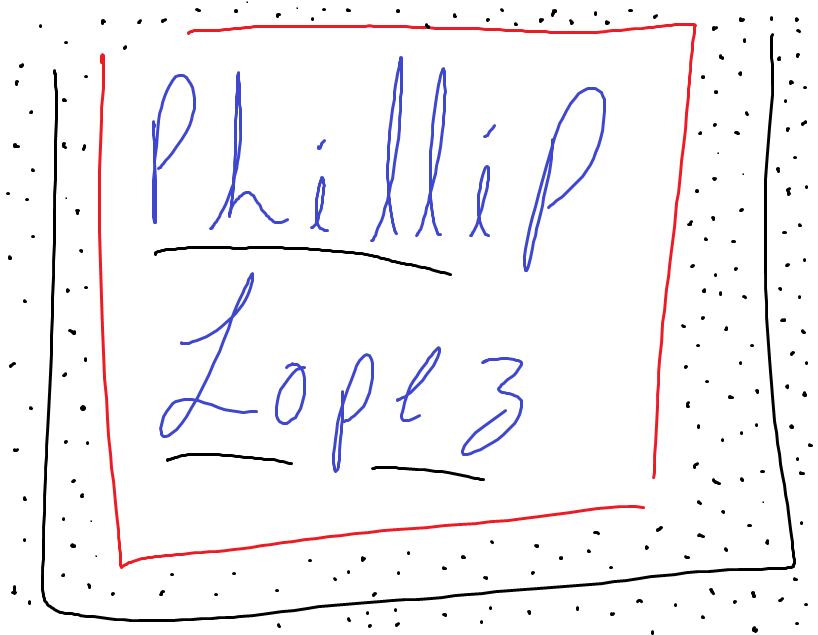 Phillip
Lopez